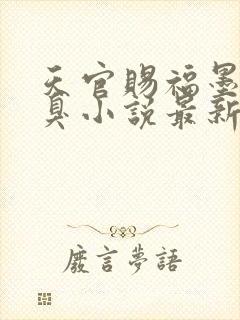 天官賜福墨
臭小說最新
廢言夢語